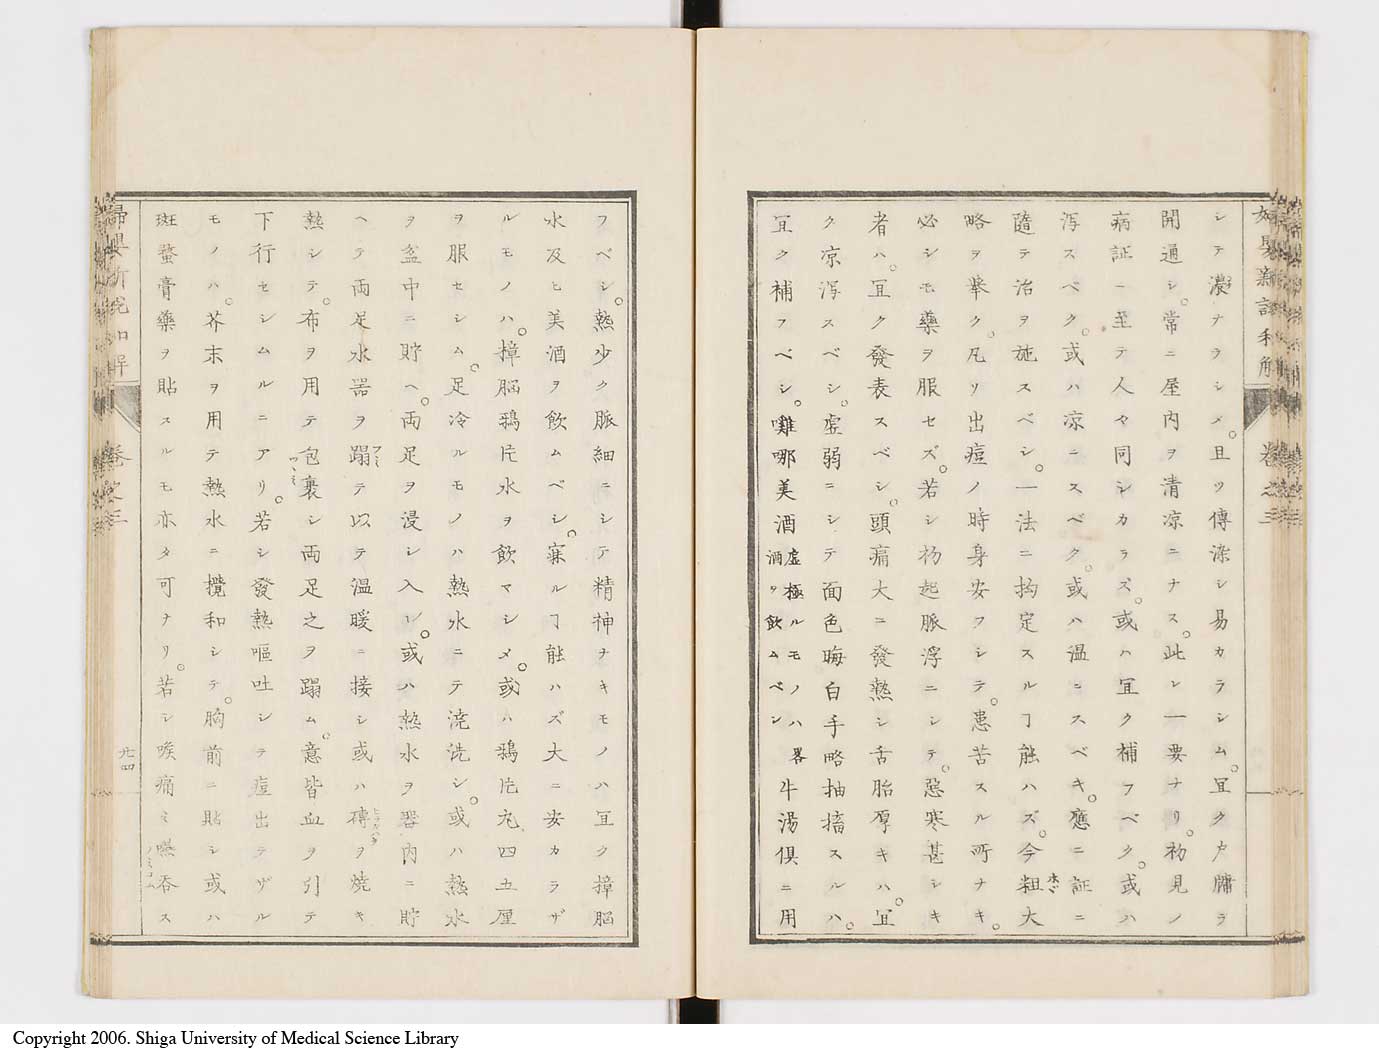 シテ濃ナラシメ。且ツ傳染シ易カラシム。宜ク戸牖ヲ
開通シ。常ニ屋内ヲ清涼ニナス。此レ一要ナリ。初見ノ
病証ニ至テ人々同シカラズ。或ハ宜ク補フベク。或ハ
瀉スベク。或ハ凉ニスベク。或ハ温ニスベキ。應ニ証ニ
隨テ治ヲ施スベシ。一法ニ拘定スルヿ能ハズ。今粗大
略ヲ舉ク。凡リ出痘ノ時身安フシテ。患苦スル所ナキ。
必シモ藥ヲ服セズ。若シ初起脈浮ニシテ。惡寒甚シキ
者ハ。宜ク發表スベシ。頭痛大ニ發熱シ舌胎厚キハ。宜
ク凉瀉スベシ。虚弱ニシテ面色晦白手略抽搐スルハ。
宜ク補フベシ。囄哪美酒虚極ルモノハ畧酒ヲ飲ムベシ牛湯倶ニ用
婦嬰新説和解
卷之三
フベシ。熱少ク脈細ニシテ精神ナキモノハ宜ク樟脳
水及ヒ美酒ヲ飲ムベシ。寐ルヿ能ハズ大ニ安カラザ
ルモノハ。樟脳鴉片水ヲ飲マシメ。或ハ鴉片丸四五厘
ヲ服セシム。足冷ルモノハ熱水ニテ澆洗シ。或ハ熱水
ヲ盆中ニ貯ヘ。両足ヲ浸シ入レ。或ハ熱水ヲ器内ニ貯
ヘテ両足水器ヲ蹋テ以テ温暖ニ接シ或ハ磚ヲ焼キ
熱シテ。布ヲ用テ包裹シ両足之ヲ蹋ム。意皆血ヲ引テ
下行セシムルニアリ。若シ發熱嘔吐シテ痘出テザル
モノハ。芥末ヲ用テ熱水ニ攪和シテ。胸前ニ貼シ或ハ
斑蝥膏藥ヲ貼スルモ亦タ可ナリ。若シ喉痛ミ嚥呑ス
卷之三
廿四
Copyright 2006. Shiga University of Medical Science Library